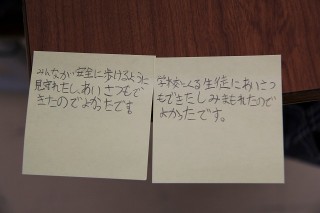 みんなが安全に歩けるように
見守れたし、あいさつもで
きたのでよかったです。
学校にくる生徒にあいさつ
もできたしみまもれたので
よかったです。